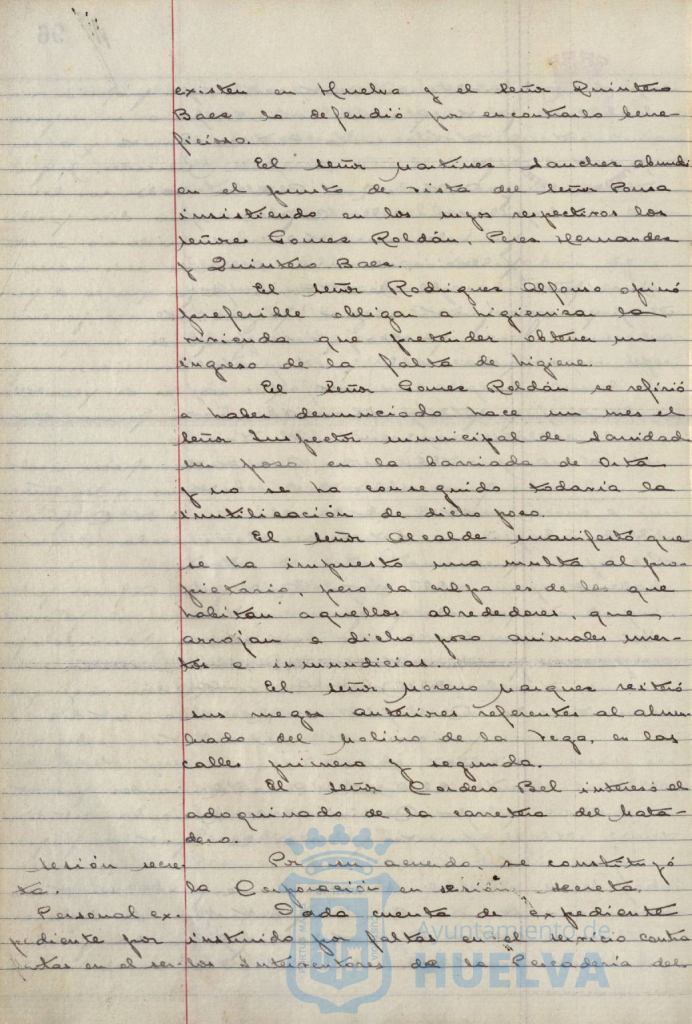 existen en Huelva y el señor Quintero
Baez lo defendió por encontrarlo bene-
ficioso.
El señor Martinez Sanchez abundó
en el punto de vista del señor Ponsa
insistiendo en los suyos respectivos los
señores Gomez Roldán, Perez Hernandez
y Quintero Baez.
El señor Rodriguez Alfonso opinó
preferible obligar a higienizar la
vivienda que pretender obtener un
ingreso de la falta de higiene.
El señor Gomez Roldán se refirió
a haber denunciado hace un mes el
señor Inspector municipal de Sanidad
un pozo en la barriada de Orta
y no se ha conseguido todavía la
inutilización de dicho pozo.
El señor Alcalde manifestó que
se ha impuesto una multa al pro-
pietario, pero la culpa es de los que
habitan aquellos alrededores, que
arrojan a dicho pozo animales muer-
tos e inmundicias.
El señor Moreno Marquez reiteró
sus ruegos anteriores referentes al alum-
brado del Molino de la Vega, en las
calles primera y segunda.
El señor Cordero Bel interesó el
adoquinado de la carretera del Mata-
dero.
Sesión secre-
ta.
Por su acuerdo, se constituyó
la Corporación en sesión secreta.
Personal ex-
pediente por
faltas en el ser-
Dada cuenta de expediente
instruido por faltas en el servicio contra
los Interventores de la Pescadería del
Ayuntamiento de
HUELVA